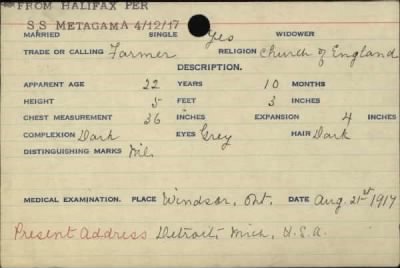 FROM HALIFAX PER
S S METAGAMA 4/12/17
MARRIED SINGLE Yes WIDOWER
TRADE OR CALLING Farmer RELIGION Church of England
DESCRIPTION.
APPARENT AGE 22 YEARS 10 MONTHS
HEIGHT 5 FEET 3 INCHES
CHEST MEASUREMENT 36 INCHES EXPANSION 4 INCHES
COMPLEXION Dark EYES Grey HAIR Dark
DISTINGUISHING MARKS Nil.
MEDICAL EXAMINATION. PLACE Windsor, Ont. DATE Aug. 21st 1917
Present Address Detroit, Mich, U.S.A.